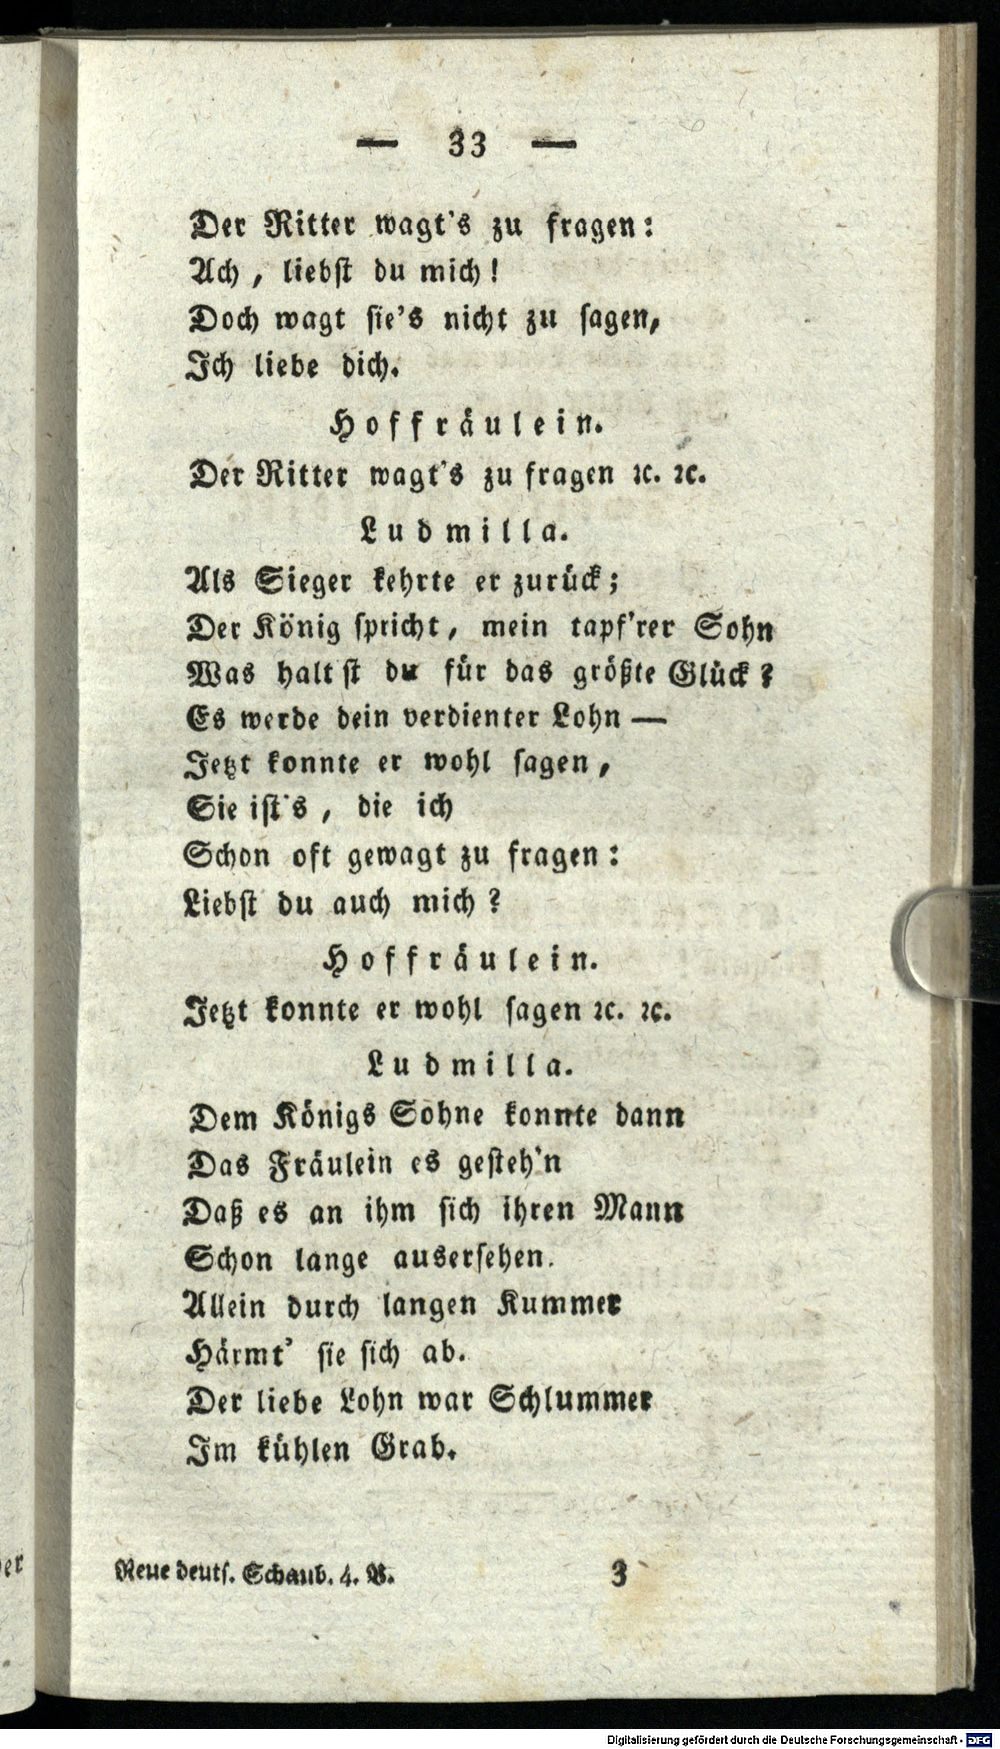 — 33 —
Der Ritter wagt's zu fragen:
Ach, liebst du mich!
Doch wagt sie's nicht zu sagen,
Ich liebe dich.
Hoffräulein.
Der Ritter wagt's zu fragen ꝛc. ꝛc.
Ludmilla.
Als Sieger kehrte er zurück;
Der König spricht, mein tapf'rer Sohn
Was haltst du für das größte Glück?
Es werde dein verdienter Lohn —
Jetzt konnte er wohl sagen,
Sie ist's, die ich
Schon oft gewagt zu fragen:
Liebst du auch mich?
Hoffräulein.
Jetzt konnte er wohl sagen ꝛc. ꝛc.
Ludmilla.
Dem Königs Sohne konnte dann
Das Fräulein es gesteh'n
Daß es an ihm sich ihren Mann
Schon lange ausersehen.
Allein durch langen Kummer
Härmt' sie sich ab.
Der liebe Lohn war Schlummer
Im kühlen Grab.
Neue deuts. Schaub. 4. B. 3
er
Digitalisierung gefördert durch die Deutsche Forschungsgemeinschaft - DFG